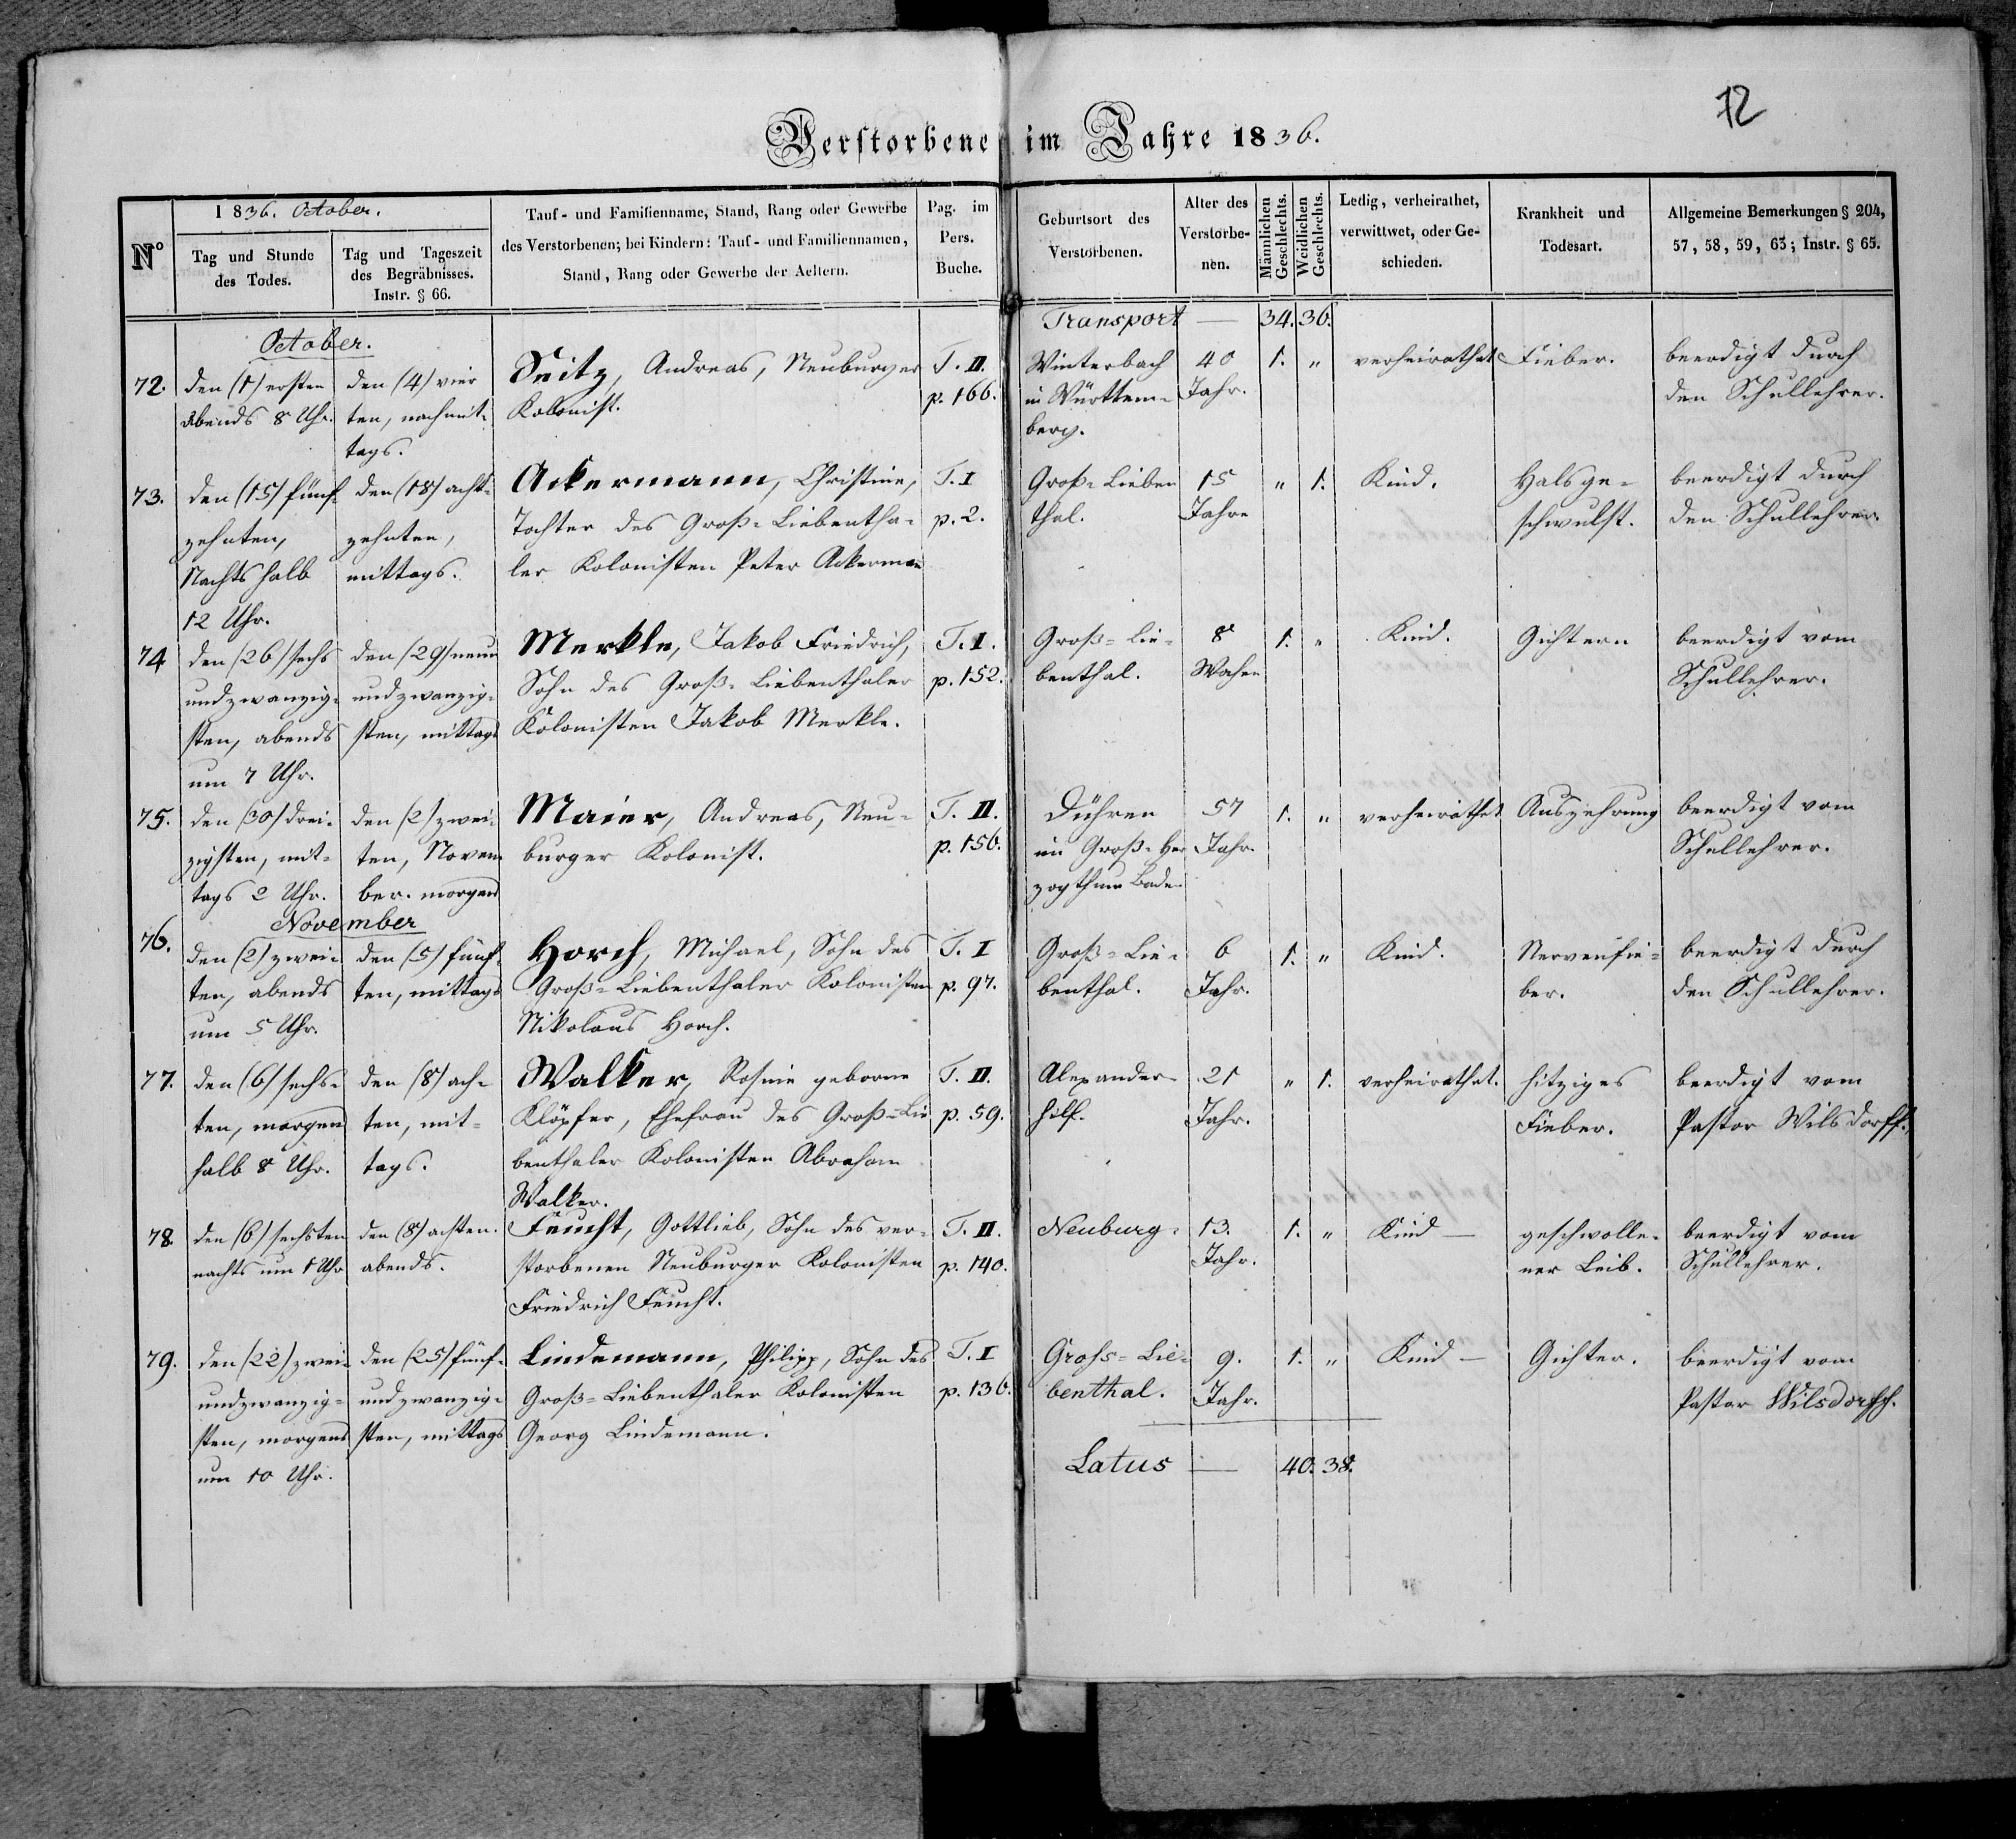 12
Verstorbene im Jahre 1836.
Nº
1836. October.
Tag und Stunde
des Todes.
Tag und Tageszeit
des Begräbnisses.
Instr. § 66.
Tauf- und Familienname, Stand, Rang oder Gewerbe
des Verstorbenen; bei Kindern: Tauf- und Familiennamen,
Stand, Rang oder Gewerbe der Aeltern.
Pag. im
Pers.
Buche.
Geburtsort des
Verstorbenen.
Alter des
Verstorbe-
nen.
Männlichen
Geschlechts.
Weidlichen
Geschlechts.
Ledig, verheirathet,
verwittwet, oder Ge-
schieden.
Krankheit und
Todesart.
Allgemeine Bemerkungen § 204,
57, 58, 59, 63; Instr. § 65.
Transport — 34. 36.
October.
72.
den (1) ersten
abends 8 Uhr.
den (4) vier
ten, nachmit-
tags.
Seitz, Andreas, Neuburger
Kolonist.
T. II.
p. 166.
Winterbach
in Württem-
berg.
40
Jahr.
1. „
verheirathet
Fieber.
beerdigt durch
den Schullehrer.
73.
den (15) fünf-
zehnten,
Nachts halb
12 Uhr.
den (18) acht-
zehnten,
mittags.
Ackermann, Christine,
Tochter des Groß-Liebentha-
ler Kolonisten Peter Ackermann
T. I
p. 2.
Groß-Lieben
thal.
15
Jahre
„ 1.
Kind.
Halsge-
schwulst.
beerdigt durch
den Schullehrer.
74
den (26) sechs
undzwanzig-
sten, abends
um 7 Uhr.
den (29) neun
undzwanzig-
sten, mittags
Merkle, Jakob Friedrich,
Sohn des Groß-Liebenthaler
Kolonisten Jakob Merkle.
T. I.
p. 152.
Groß-Lie-
benthal.
8
Wochen
1. „
Kind.
Gichtern
beerdigt vom
Schullehrer.
75.
den (30) drei-
zigsten, mit-
tags 2 Uhr.
den (2) zwei-
ten, Novem
ber. morgens
Maier, Andreas, Neu-
burger Kolonist.
T. II.
p. 156.
Dühren
im Groß-Her
zogthum Baden
57
Jahr.
1. „
verheirathet
Auszehrung
beerdigt vom
Schullehrer.
November
76.
den (2) zwei-
ten, abends
um 5 Uhr.
den (5) fünf-
ten, mittags
Horch, Michael, Sohn des
Groß-Liebenthaler Kolonisten
Nikolaus Horch.
T. I
p. 97.
Groß-Lie-
benthal.
6
Jahr.
1. „
Kind.
Nervenfie-
ber.
beerdigt durch
den Schullehrer.
77.
den (6) sechs-
ten, morgens
halb 8 Uhr.
den (8) ach-
ten, mit-
tags.
Walker, Rosine geborne
Klöpfer, Ehefrau des Groß-Lie
benthaler Kolonisten Abraham
Walker.
T. II.
p. 59.
Alexander-
hilf.
21
Jahr.
„ 1.
verheirathet.
hitziges
Fieber.
beerdigt vom
Pastor Wilsdorff.
78.
den (6) sechsten
nachts um 1 Uhr
den (8) achten.
abends.
Feucht, Gottlieb, Sohn des ver-
storbenen Neuburger Kolonisten
Friedrich Feucht.
T. II.
p. 140.
Neuburg.
13.
Jahr.
1. „
Kind —
geschwolle-
ner Leib.
beerdigt vom
Schullehrer.
79.
den (22) zwei-
undzwanzig-
sten, morgens
um 10 Uhr.
den (25) fünf-
undzwanzig-
sten, mittags
Lindemann, Philipp, Sohn des
Groß-Liebenthaler Kolonisten
Georg Lindemann.
T. I
p. 136.
Gross-Lie-
benthal.
9.
Jahr.
1. „
Kind —
Gichter.
beerdigt vom
Pastor Wilsdorff.
Latus — 40. 38.